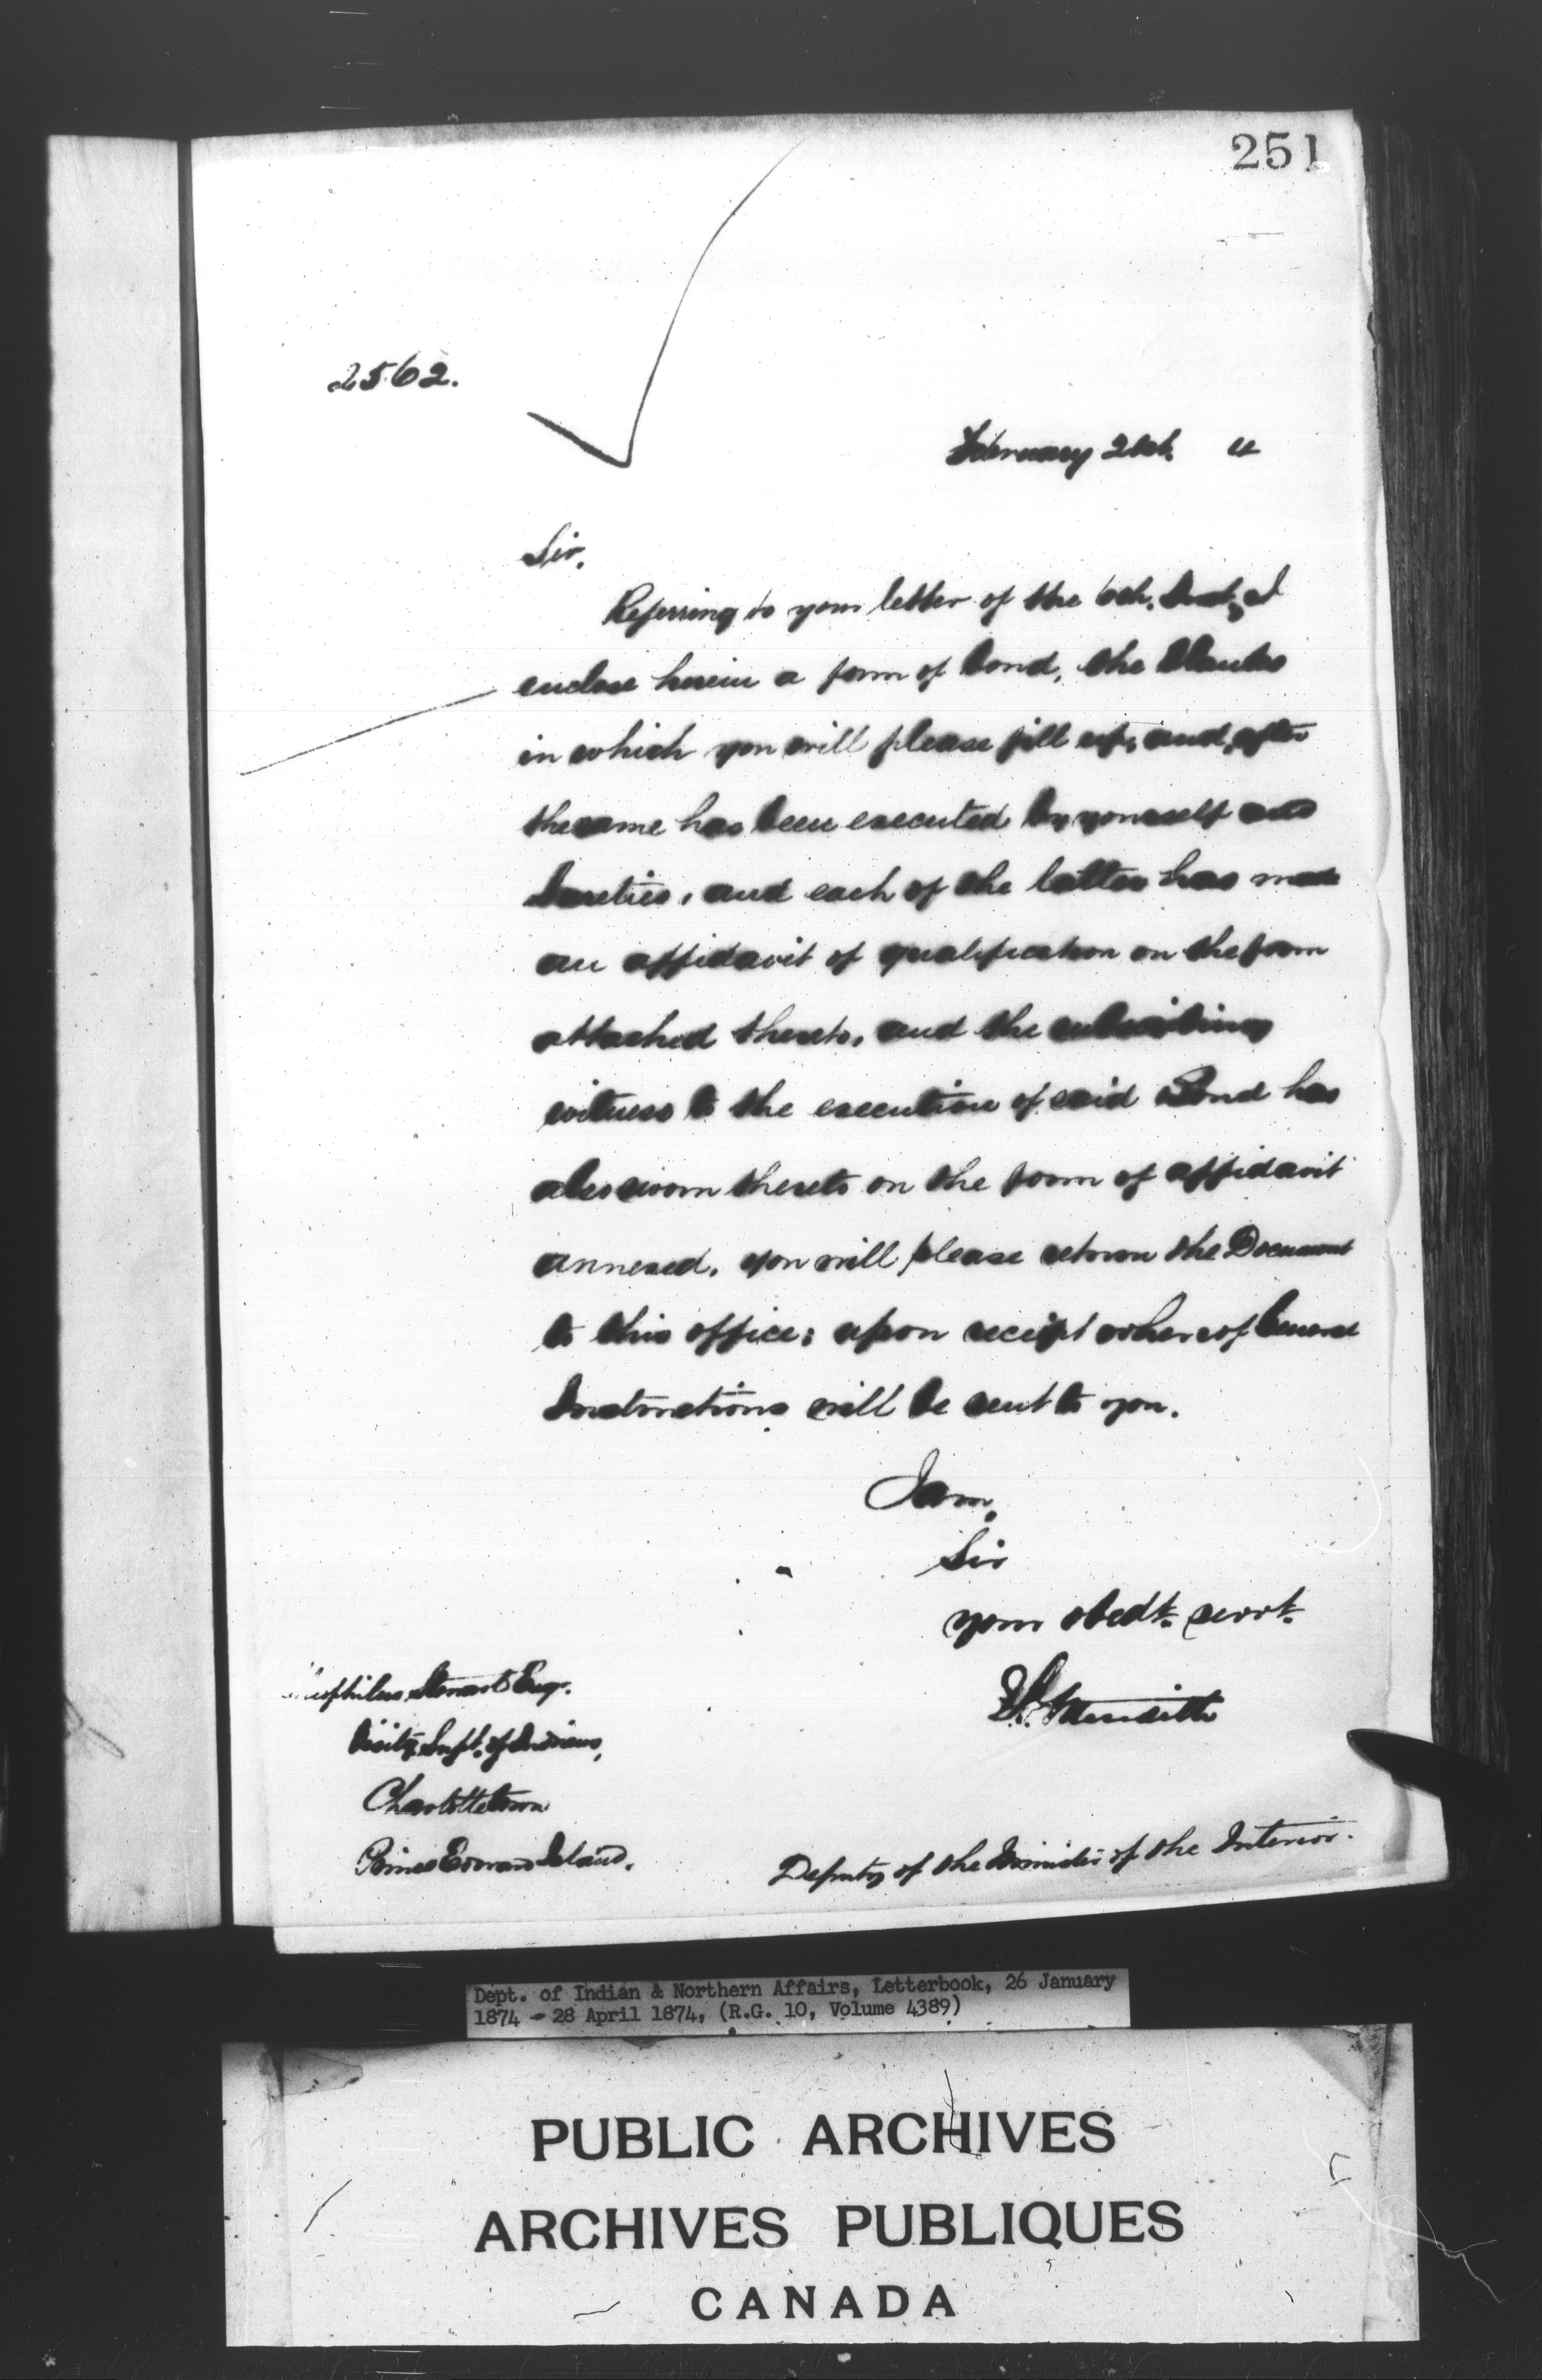 251
2562.
February 21st.
Sir,
Referring to your letter of the 6th. Inst, I
enclose herein a form of bond, the blanks
in which you will please fill up, and, after
the same has been executed by yourself and
Sureties, and each of the latter has made
an affidavit of qualification on the form
attached thereto, and the subscribing
witness to the execution of said Bond has
also sworn thereto on the form of affidavit
annexed, you will please return the Document
to this office; upon receipt whereof General
Instructions will be sent to you.
I am,
Sir
your obedt. servt.
Meredith
Theophilus Stewart Esqr.
Visitg. Supt. of Indians,
Charlottetown
Prince Edward Island.
Deputy of the Minister of the Interior.
Dept. of Indian & Northern Affairs, Letterbook, 26 January
1874 - 28 April 1874, (R.G. 10, Volume 4389)
PUBLIC ARCHIVES
ARCHIVES PUBLIQUES
CANADA